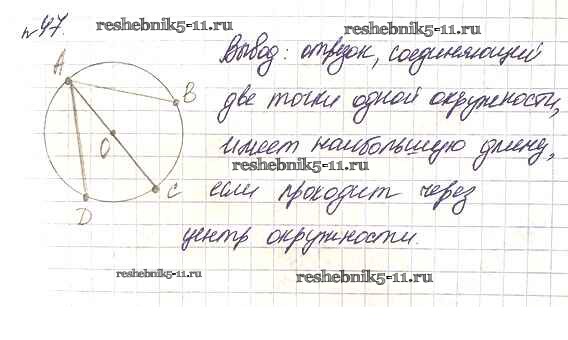 №47.
reshebnik5-11.ru
reshebnik5-11.ru
Вывод: отрезок, соединяющий
A
B
две точки одной окружности,
O
имеет наибольшую длину,
reshebnik5-11.ru
C
если проходит через
D
центр окружности.
reshebnik5-11.ru
reshebnik5-11.ru